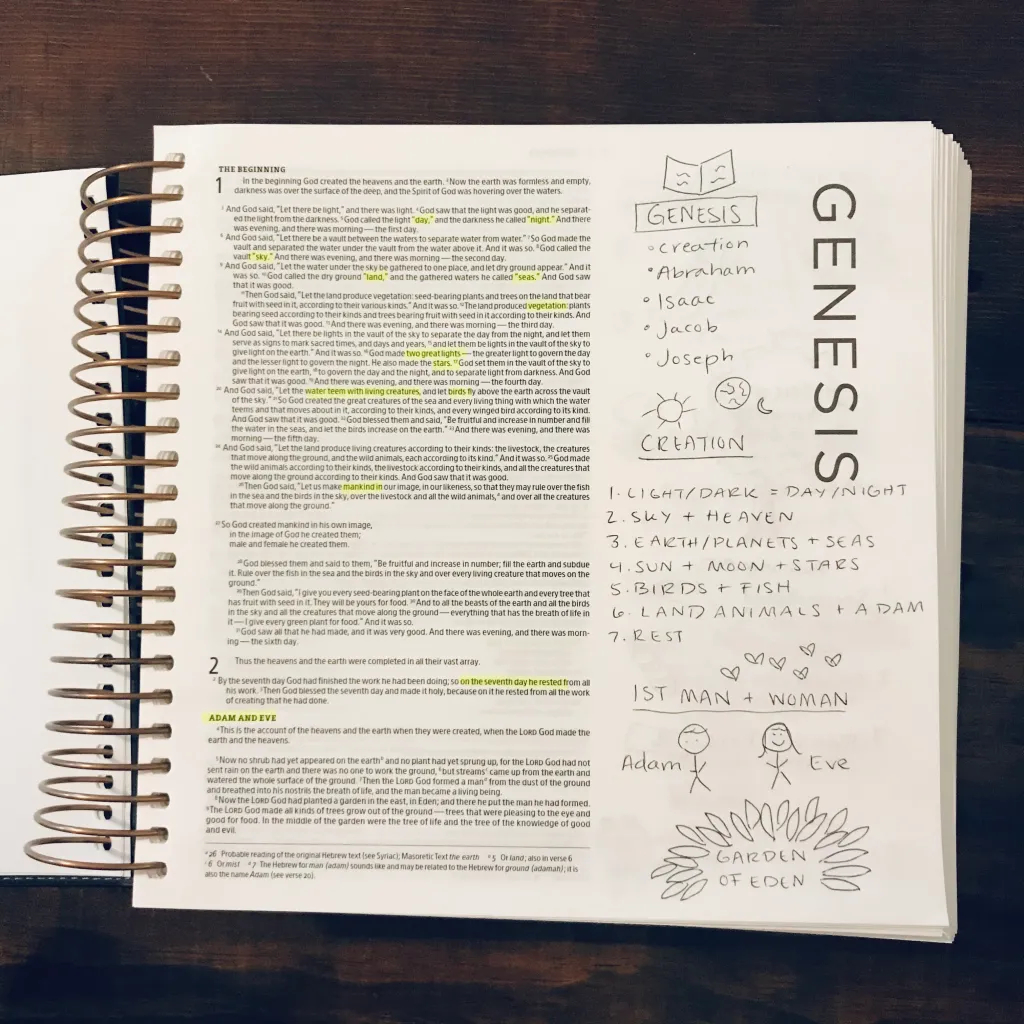 THE BEGINNING
1 In the beginning God created the heavens and the earth. ²Now the earth was formless and empty,
darkness was over the surface of the deep, and the Spirit of God was hovering over the waters.
³And God said, "Let there be light," and there was light. ⁴God saw that the light was good, and he separat-
ed the light from the darkness. ⁵God called the light "day," and the darkness he called "night." And there
was evening, and there was morning — the first day.
⁶And God said, "Let there be a vault between the waters to separate water from water." ⁷So God made the
vault and separated the water under the vault from the water above it. And it was so. ⁸God called the
vault "sky." And there was evening, and there was morning — the second day.
⁹And God said, "Let the water under the sky be gathered to one place, and let dry ground appear." And it
was so. ¹⁰God called the dry ground "land," and the gathered waters he called "seas." And God saw
that it was good.
¹¹Then God said, "Let the land produce vegetation: seed-bearing plants and trees on the land that bear
fruit with seed in it, according to their various kinds." And it was so. ¹²The land produced vegetation: plants
bearing seed according to their kinds and trees bearing fruit with seed in it according to their kinds. And
God saw that it was good. ¹³And there was evening, and there was morning — the third day.
¹⁴And God said, "Let there be lights in the vault of the sky to separate the day from the night, and let them
serve as signs to mark sacred times, and days and years, ¹⁵and let them be lights in the vault of the sky to
give light on the earth." And it was so. ¹⁶God made two great lights — the greater light to govern the day
and the lesser light to govern the night. He also made the stars. ¹⁷God set them in the vault of the sky to
give light on the earth, ¹⁸to govern the day and the night, and to separate light from darkness. And God
saw that it was good. ¹⁹And there was evening, and there was morning — the fourth day.
²⁰And God said, "Let the water teem with living creatures, and let birds fly above the earth across the vault
of the sky." ²¹So God created the great creatures of the sea and every living thing with which the water
teems and that moves about in it, according to their kinds, and every winged bird according to its kind.
And God saw that it was good. ²²God blessed them and said, "Be fruitful and increase in number and fill
the water in the seas, and let the birds increase on the earth." ²³And there was evening, and there was
morning — the fifth day.
²⁴And God said, "Let the land produce living creatures according to their kinds: the livestock, the creatures
that move along the ground, and the wild animals, each according to its kind." And it was so. ²⁵God made
the wild animals according to their kinds, the livestock according to their kinds, and all the creatures that
move along the ground according to their kinds. And God saw that it was good.
²⁶Then God said, "Let us make mankind in our image, in our likeness, so that they may rule over the fish
in the sea and the birds in the sky, over the livestock and all the wild animals,ᵃ and over all the creatures
that move along the ground."
²⁷So God created mankind in his own image,
in the image of God he created them;
male and female he created them.
²⁸God blessed them and said to them, "Be fruitful and increase in number; fill the earth and subdue
it. Rule over the fish in the sea and the birds in the sky and over every living creature that moves on the
ground."
²⁹Then God said, "I give you every seed-bearing plant on the face of the whole earth and every tree that
has fruit with seed in it. They will be yours for food. ³⁰And to all the beasts of the earth and all the birds
in the sky and all the creatures that move along the ground — everything that has the breath of life in
it — I give every green plant for food." And it was so.
³¹God saw all that he had made, and it was very good. And there was evening, and there was morn-
ing — the sixth day.
2 Thus the heavens and the earth were completed in all their vast array.
²By the seventh day God had finished the work he had been doing; so on the seventh day he rested from all
his work. ³Then God blessed the seventh day and made it holy, because on it he rested from all the work
of creating that he had done.
ADAM AND EVE
⁴This is the account of the heavens and the earth when they were created, when the LORD God made the
earth and the heavens.
⁵Now no shrub had yet appeared on the earthᵇ and no plant had yet sprung up, for the LORD God had not
sent rain on the earth and there was no one to work the ground, ⁶but streamsᶜ came up from the earth and
watered the whole surface of the ground. ⁷Then the LORD God formed a manᵈ from the dust of the ground
and breathed into his nostrils the breath of life, and the man became a living being.
⁸Now the LORD God had planted a garden in the east, in Eden; and there he put the man he had formed.
⁹The LORD God made all kinds of trees grow out of the ground — trees that were pleasing to the eye and
good for food. In the middle of the garden were the tree of life and the tree of the knowledge of good
and evil.
ᵃ26 Probable reading of the original Hebrew text (see Syriac); Masoretic Text the earth ᵇ5 Or land; also in verse 6
ᶜ6 Or mist ᵈ7 The Hebrew for man (adam) sounds like and may be related to the Hebrew for ground (adamah); it is
also the name Adam (see verse 20).
GENESIS
GENESIS
◦ creation
• Abraham
◦ Isaac
• Jacob
◦ Joseph
CREATION
1. LIGHT/DARK = DAY/NIGHT
2. SKY + HEAVEN
3. EARTH/PLANETS + SEAS
4. SUN + MOON + STARS
5. BIRDS + FISH
6. LAND ANIMALS + ADAM
7. REST
1ST MAN + WOMAN
Adam Eve
GARDEN
OF EDEN